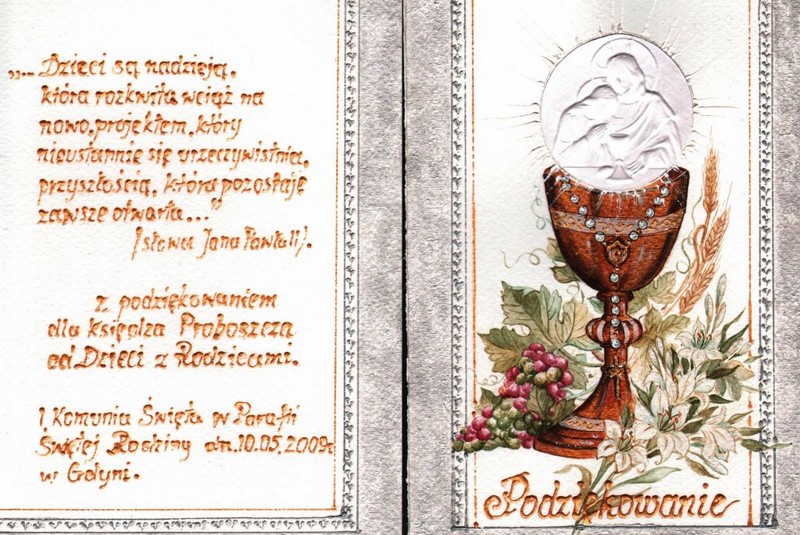 „... Dzieci są nadzieją,
która rozkwita wciąż na
nowo, projektem, który
nieustannie się urzeczywistnia,
przyszłością, która pozostaje
zawsze otwarta..."
(słowa Jana Pawła II).
z podziękowaniem
dla księdza Proboszcza
od Dzieci z Rodzicami.
I Komunia Święta w Parafii
Świętej Rodziny dn. 10.05.2009r.
w Gdyni.
Podziękowanie